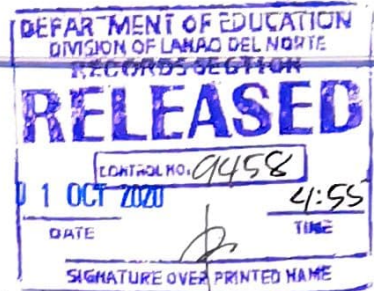 DEPARTMENT OF EDUCATION
DIVISION OF LANAO DEL NORTE
RECORDS SECTION
RELEASED
CONTROL NO. 9458
01 OCT 2020 4:55
DATE TIME
SIGNATURE OVER PRINTED NAME